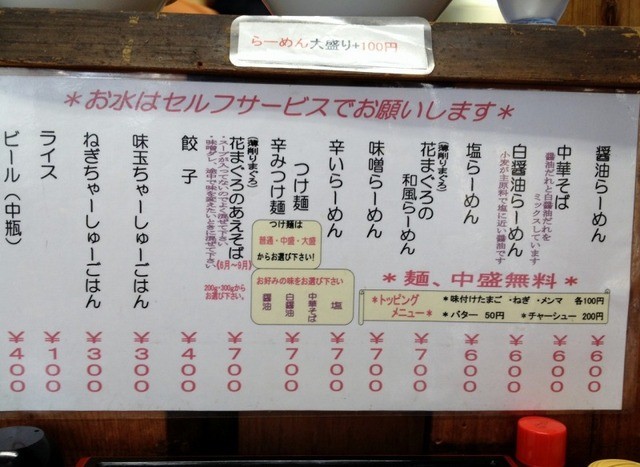 らーめん大盛り+100円
＊お水はセルフサービスでお願いします＊
醤油らーめん ￥600
中華そば ￥600
醤油だれと白醤油だれを
ミックスしています
白醤油らーめん ￥600
小麦が主原料で塩に近い醤油です
塩らーめん ￥600
(薄削りまぐろ)
花まぐろの
和風らーめん ￥700
味噌らーめん ￥700
辛いらーめん ￥700
つけ麺
辛みつけ麺 ￥700
(薄削りまぐろ)
花まぐろのあえそば ￥700
《6月～9月》
餃子 ￥400
味玉ちゃーしゅーごはん ￥300
ねぎちゃーしゅーごはん ￥300
ライス ￥100
ビール(中瓶) ￥400
つけ麺は
普通・中盛・大盛
からお選び下さい!
200g・300gから
お選び下さい。
お好みの味をお選び下さい
塩
中華そば
白醤油
醤油
＊麺、中盛無料＊
＊トッピング
メニュー＊
＊味付けたまご・ねぎ・メンマ 各100円
＊バター 50円 ＊チャーシュー 200円